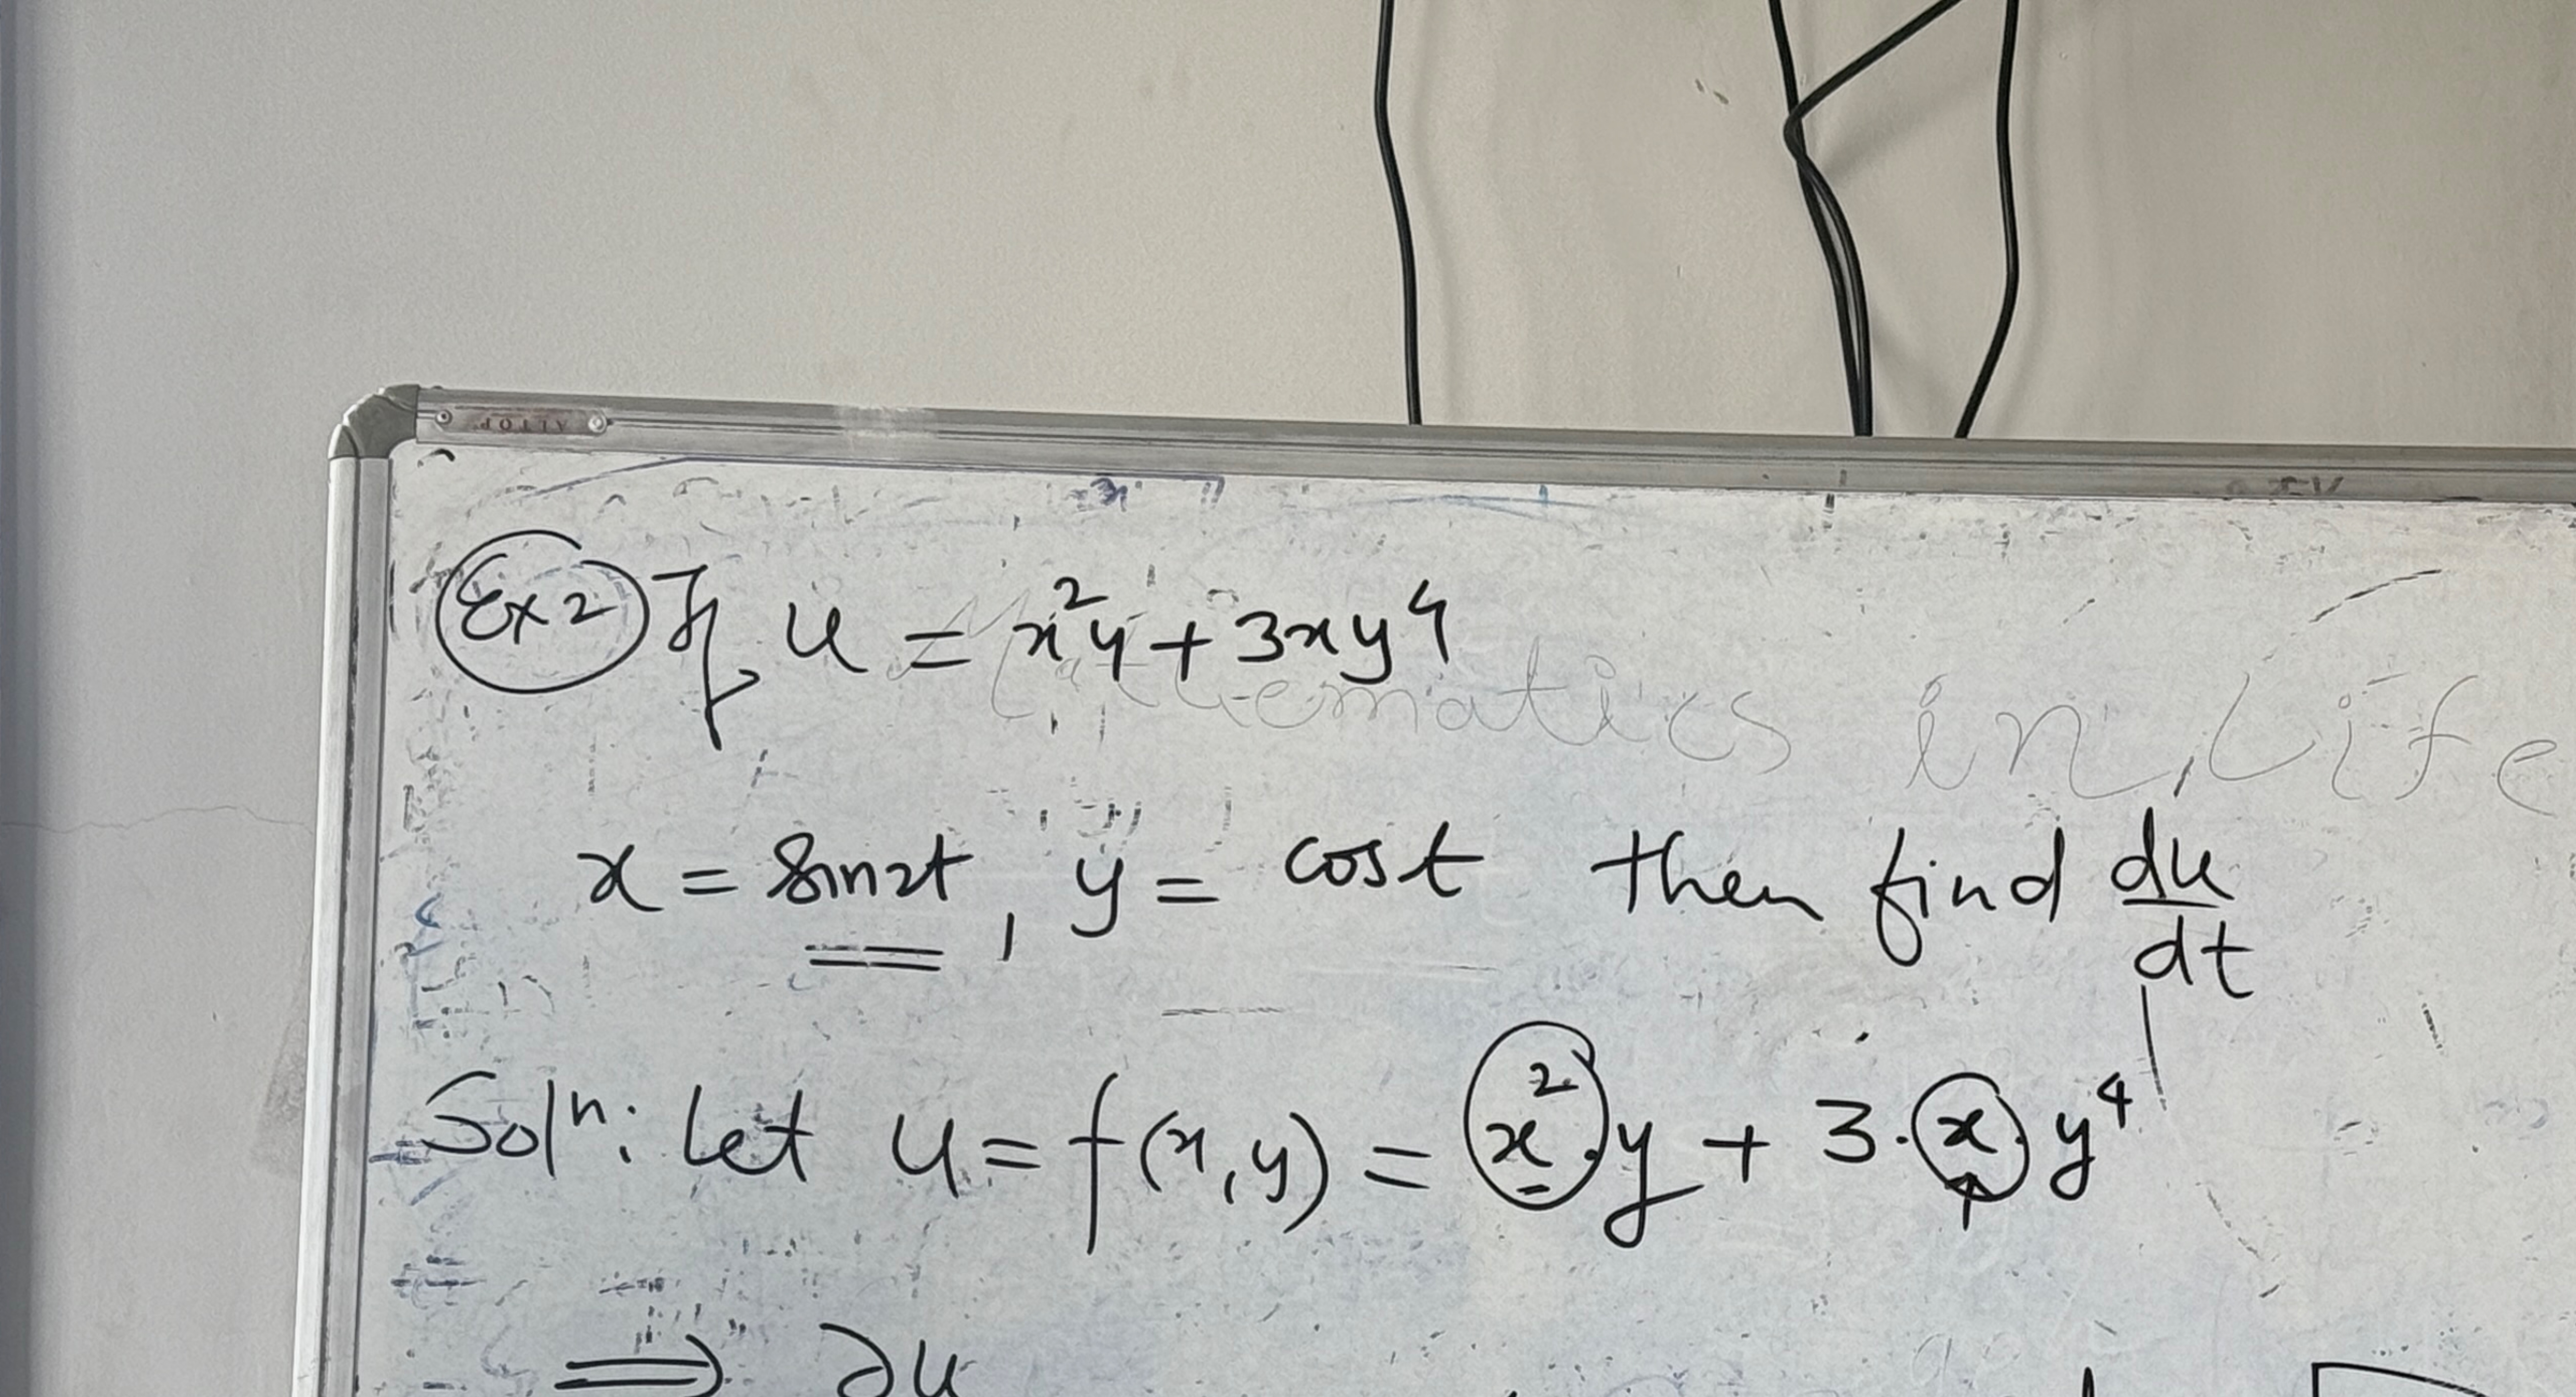 ALTOP
Ex 2 If u = x²y + 3xy⁴
Mathematics in Life
x = sin2t, y = cost then find du/dt
Solⁿ: Let u = f(x,y) = x².y + 3.x.y⁴
⇒ ∂u